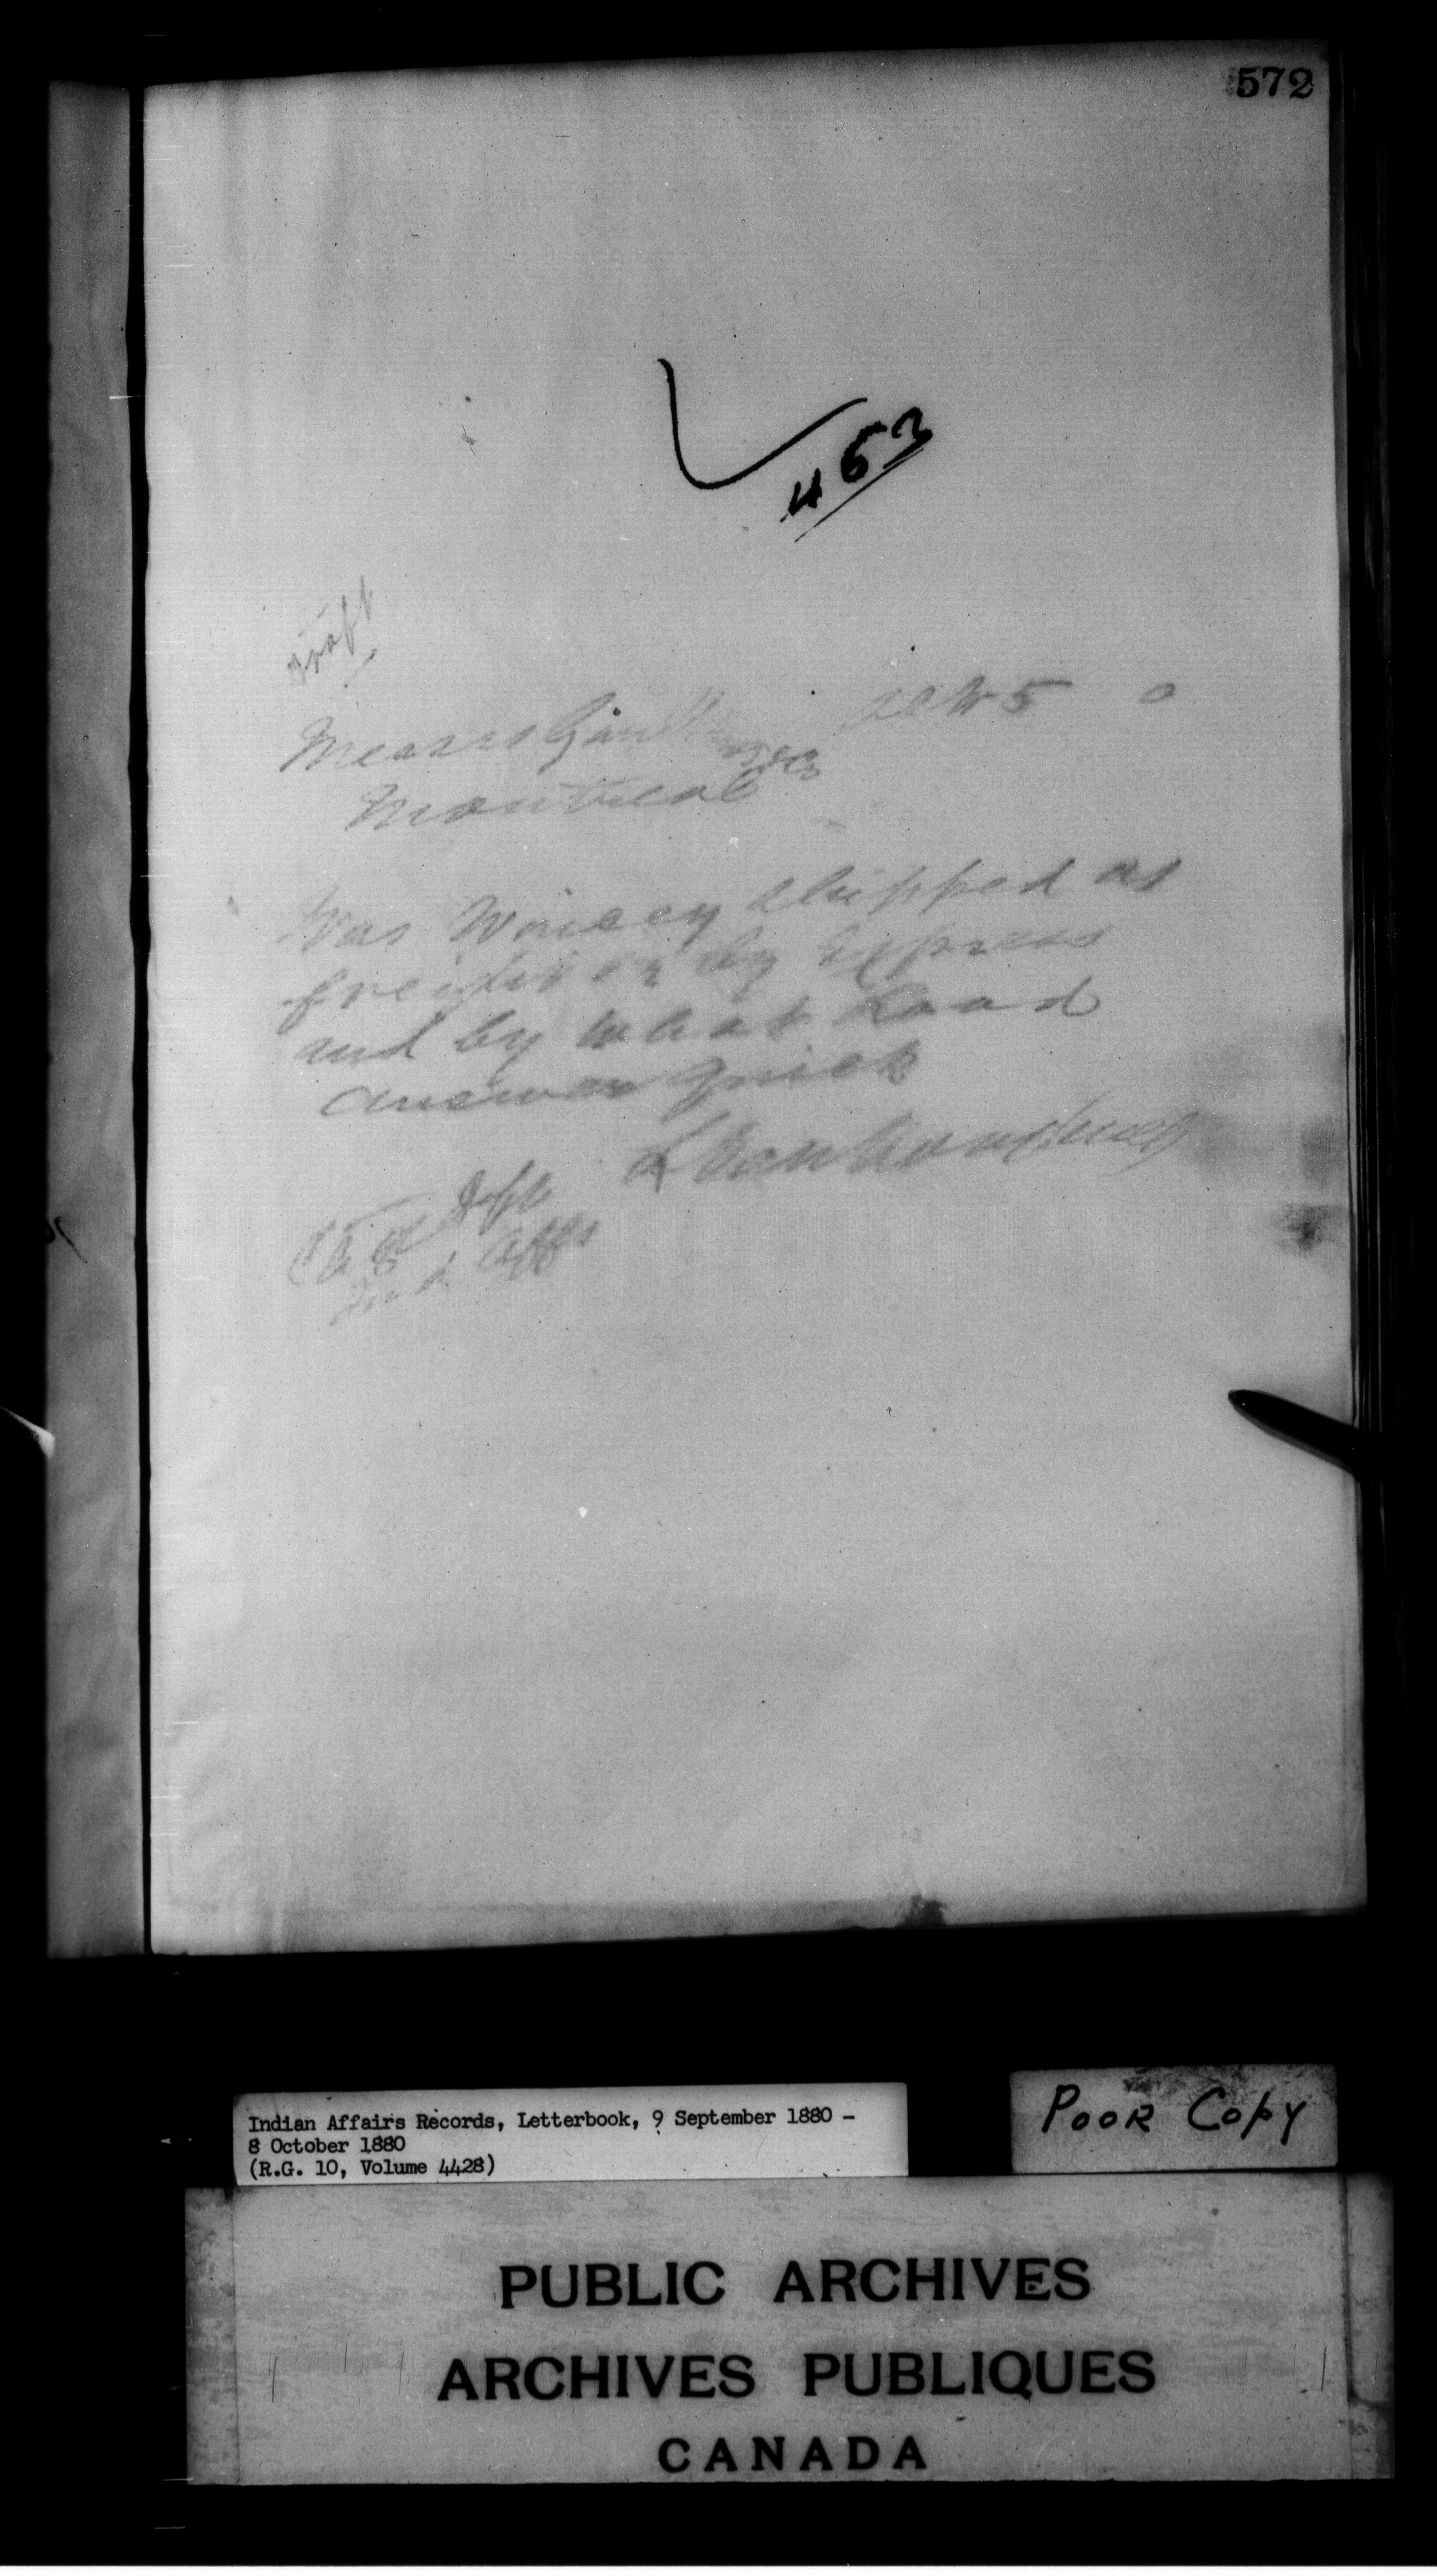 572
453
Draft
Oct 5
Messrs & Co
Montreal
Was Wincey shipped as
freight or by Express
and by what Road
answer quick
L Vankoughnet
Chg Dept
Ind Affs
Indian Affairs Records, Letterbook, 9 September 1880 -
8 October 1880
(R.G. 10, Volume 4428)
POOR COPY
PUBLIC ARCHIVES
ARCHIVES PUBLIQUES
CANADA